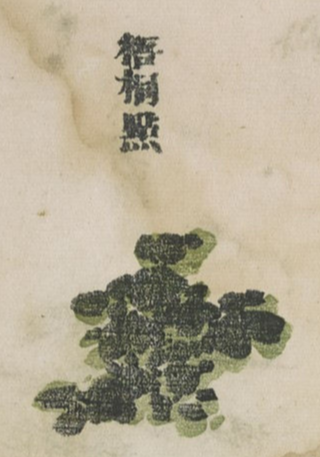 梧桐點